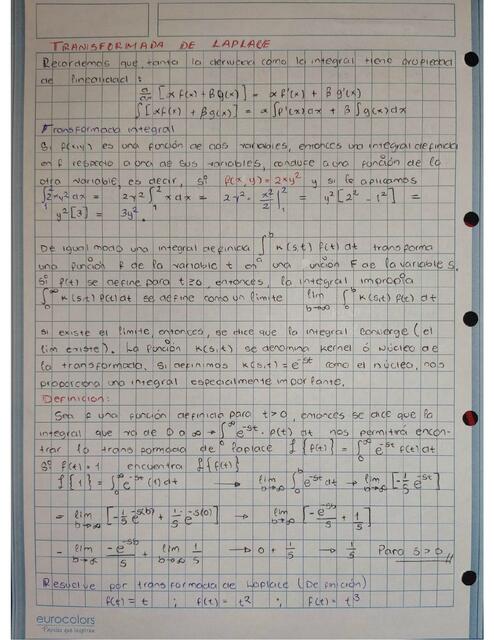 TRANSFORMADA DE LAPLACE
Recordemos que, tanto la derivada como la integral tiene propiedad
de linealidad:
d/dx [α f(x) + βg(x)] = α f'(x) + β g'(x)
∫[αf(x) + βg(x)] = α∫f'(x)dx + β ∫g(x)dx
Transformada integral
Si f(x,y) es una función de dos variables, entonces una integral definida
en f respecto a una de sus variables, conduce a una función de la
otra variable, es decir, si f(x,y) = 2xy² y si le aplicamos
∫₁² 2xy² dx = 2y² ∫₁² x dx = 2y² · x²/2 |₁² = y² [2² - 1²] =
y² [3] = 3y².
De igual modo una integral definida ∫ₐᵇ K(s,t) f(t) dt transforma
una función f de la variable t en una unción F de la variable s.
Si f(t) se define para t≥0, entonces, la integral impropia
∫₀^∞ K(s,t) f(t) dt se define como un límite lim b→∞ ∫₀ᵇ K(s,t) f(t) dt
si existe el límite, entonces, se dice que la integral converge (el
lim existe). La función K(s,t) se denomina kernel ó núcleo de
la transformada. Si definimos K(s,t) = e^-st como el núcleo, nos
proporciona una integral especialmente importante.
Definicion:
Sea f una función definida para t>0, entonces se dice que la
integral que va de 0 a ∞ → ∫₀^∞ e^-st · f(t) dt nos permitirá encon-
trar la transformada de laplace ℒ{f(t)} = ∫₀^∞ e^-st f(t) dt
Si f(t) = 1 encuentra ℒ{f(t)}
ℒ{1} = ∫₀^∞ e^-st (1) dt → lim b→∞ ∫₀ᵇ e^-st dt → lim b→∞ [-1/s e^-st]
= lim b→∞ [-1/s e^-s(b) + 1/s e^-s(0)] → lim b→∞ [-e^-sb/s + 1/s]
- lim b→∞ -e^-sb/s + lim b→∞ 1/s → 0 + 1/s → 1/s Para s > 0 //
Resuelve por transformada de Laplace (Definición)
f(t) = t ; f(t) = t² ; f(t) = t³
eurocolors